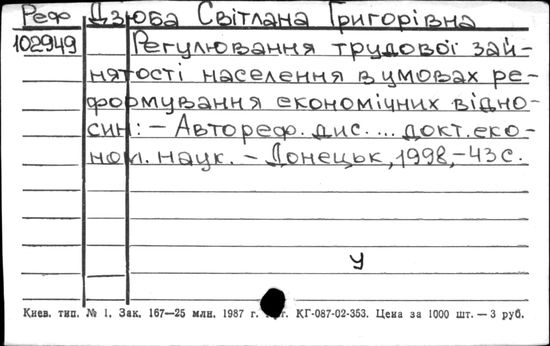 Реф Дзюба Світлана Григорівна
102949 Регулювання трудової зай-
нятості населення в умовах ре-
формування економічних відно-
син: – Автореф. дис. ... докт. еко-
ном. наук. – Донецьк, 1998, – 43 с.
У
Киев. тип. № 1. Зак. 167—25 млн. 1987 г. г. КГ-087-02-353. Цена за 1000 шт. — 3 руб.